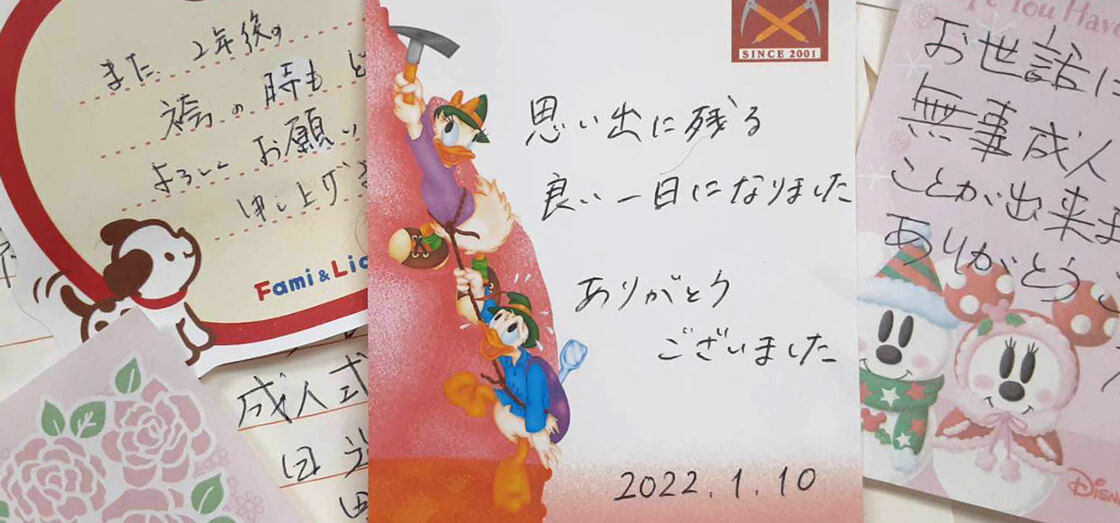 また 2年後の
袴の 時も ど
よろしく お願い
申し上げ
Fami & Li
SINCE 2001
思い出に残る
良い一日になりました
ありがとう
ございました
2022.1.10
You Have
お世話に
無事成人
ことが出来ま
ありがとう
Disn
成人式